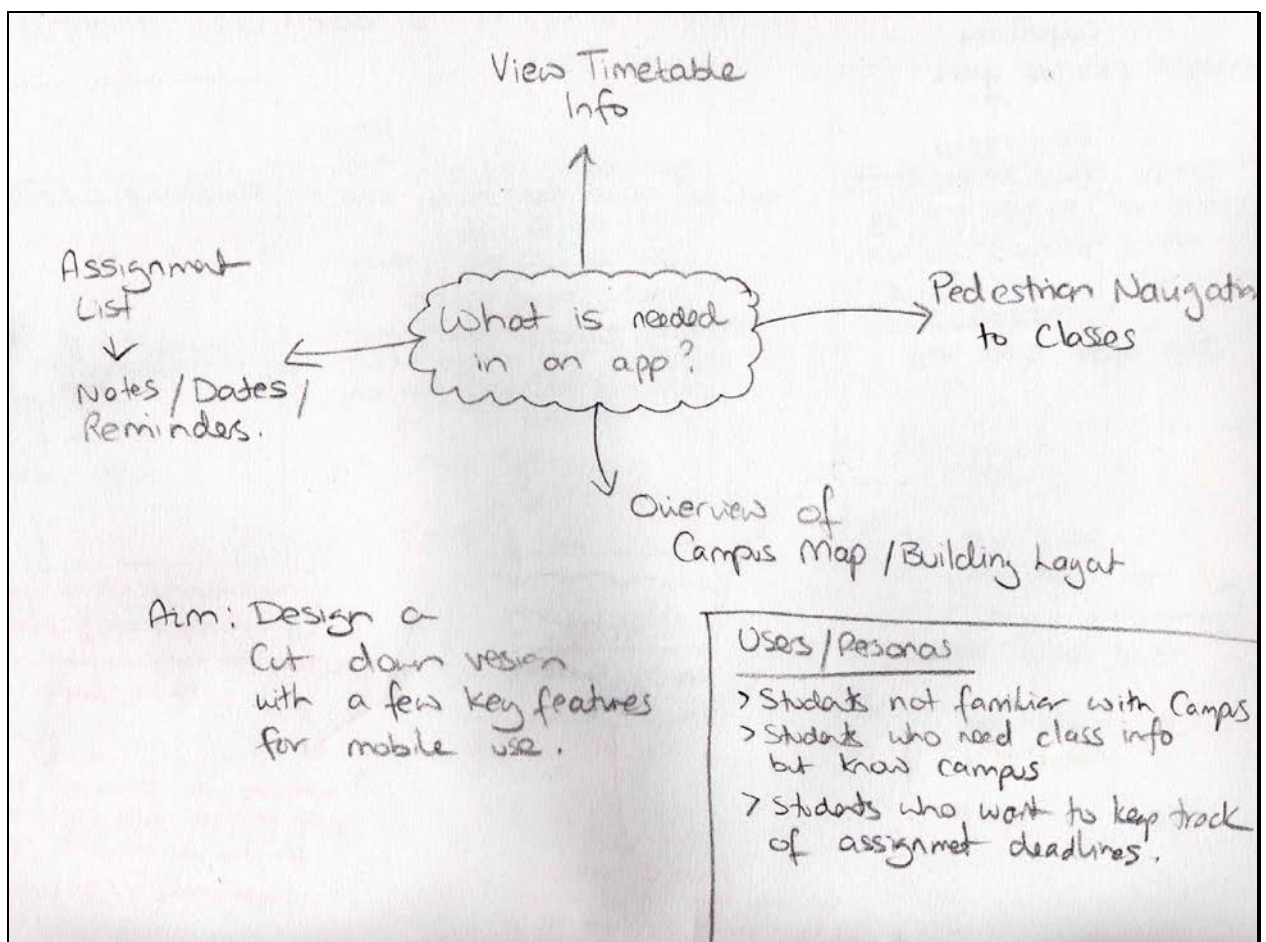 View Timetable
Info
Assignment
List
Notes / Dates /
Reminders.
What is needed
in an app?
Pedestrian Navigation
to Classes
Overview of
Campus Map / Building Layout
Aim: Design a
Cut down version
with a few key features
for mobile use.
Users / Personas
> Students not familiar with Campus
> Students who need class info
but know campus
> Students who want to keep track
of assignment deadlines.